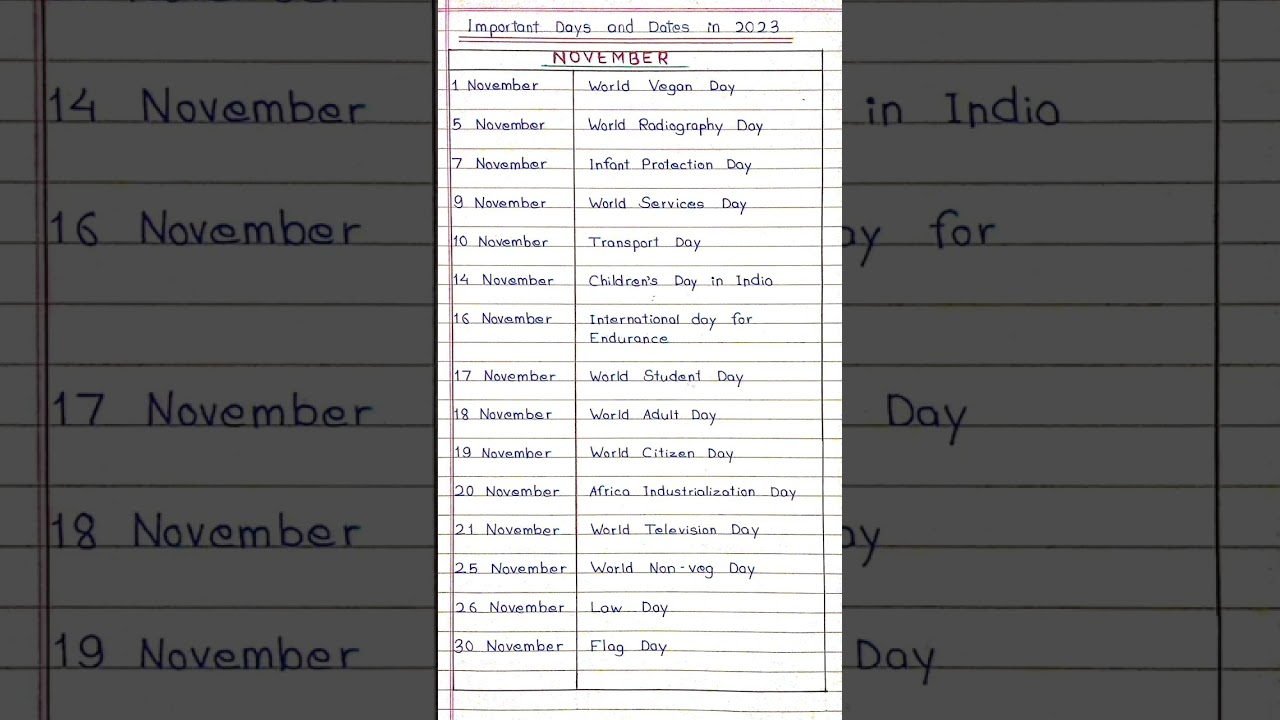 Important Days and Dates in 2023
NOVEMBER
1 November World Vegan Day
5 November World Radiography Day
7 November Infant Protection Day
9 November World Services Day
10 November Transport Day
14 November Children's Day in India
16 November International day for
Endurance
17 November World Student Day
18 November World Adult Day
19 November World Citizen Day
20 November Africa Industrialization Day
21 November World Television Day
25 November World Non-veg Day
26 November Law Day
30 November Flag Day
14 November
16 November
17 November
18 November
19 November
in India
ay for
Day
ay
Day